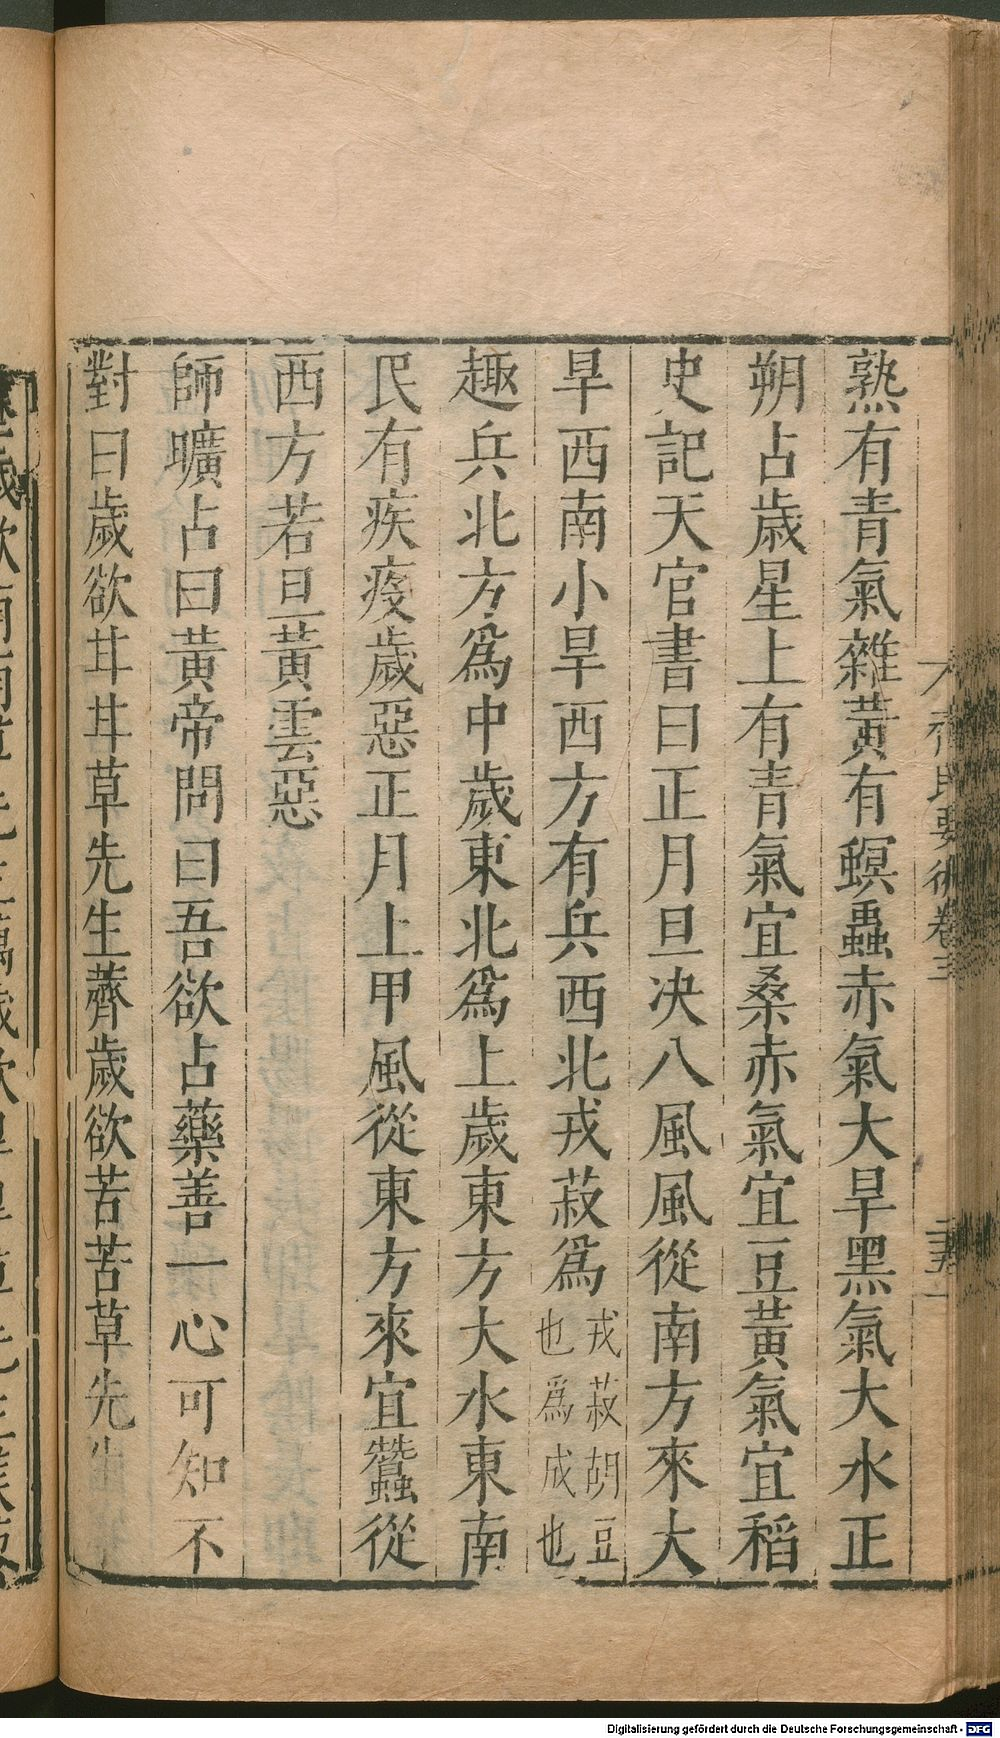 熟有青氣雜黄有螟蟲赤氣大旱黑氣大水正
朔占歳星上有青氣宜桑赤氣宜豆黄氣宜稻
史記天官書曰正月旦决八風風從南方來大
旱西南小旱西方有兵西北戎菽爲戎菽胡豆
也爲成也
趣兵北方爲中歲東北爲上歲東方大水東南
民有疾疫歲惡正月上甲風從東方來宜蠶從
西方若旦黄雲惡
師曠占曰黄帝問曰吾欲占藥善一心可知不
對曰歲欲甘甘草先生薺歲欲苦苦草先
齊民要術卷三
Digitalisierung gefördert durch die Deutsche Forschungsgemeinschaft - DFG